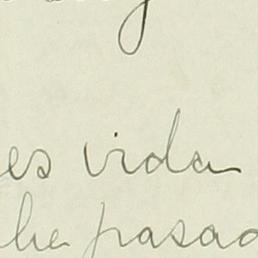 es vida
he pasad